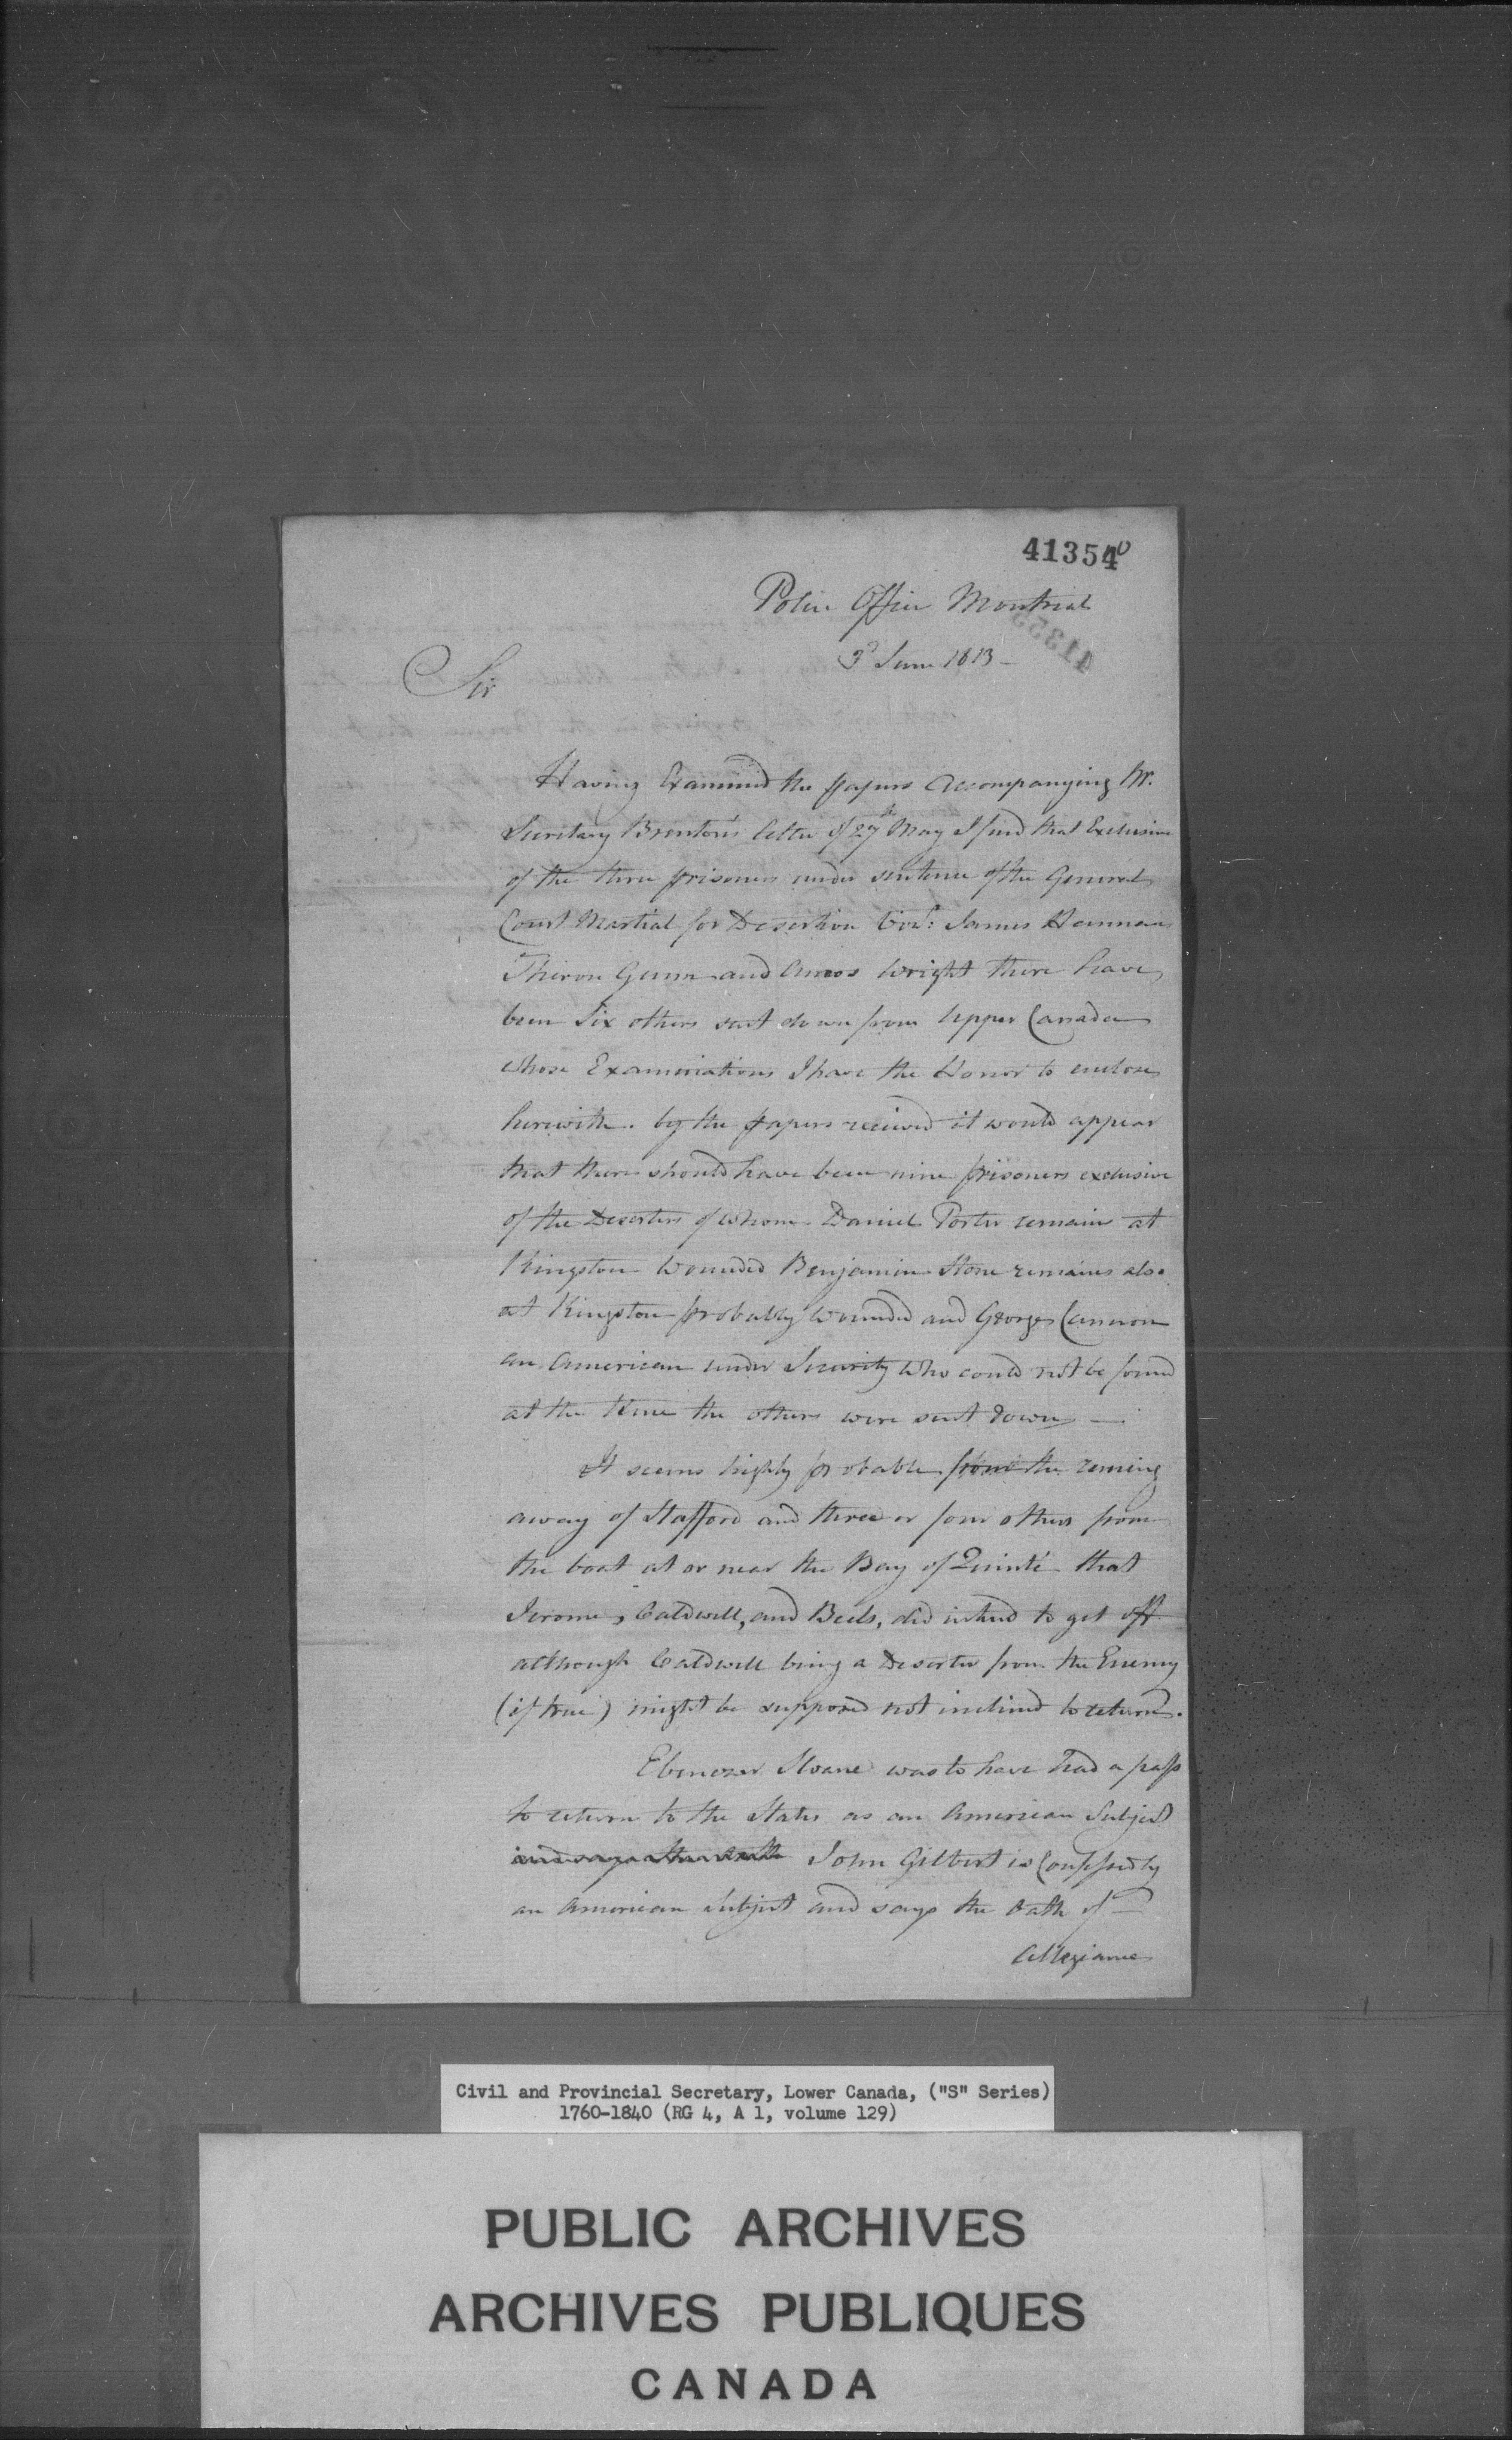 41354
Police Office Montreal
3d June 1813 —
Sir
Having Examined the papers accompanying Mr.
Secretary Brenton's letter of 27th May I find that Exclusive
of the three prisoners under sentence of the General
Court Martial for Desertion Vizt: James Hannan
Thiron Gunn and Amos Wright there have
been Six others sent down from Upper Canada
whose Examinations I have the Honor to enclose
herewith. by the papers received it would appear
that there should have been nine prisoners exclusive
of the Deserters of whom Daniel Porter remains at
Kingston Wounded Benjamin Stone remains also
at Kingston probably wounded and George Cannon
an American under Security who could not be found
at the time the others were sent down —
It seems highly probable from the running
away of Stafford and three or four others from
the boat at or near the Bay of Quinté that
Jerome, Caldwell, and Beels, did intend to get off
although Caldwell being a Deserter from the Enemy
(if true) might be supposed not inclined to return.
Ebenezer Sloane was to have had a pass
to return to the States as an American Subject
John Gilbert is Confessedly
an American Subject and says the Oath of —
Allegiance
Civil and Provincial Secretary, Lower Canada, ("S" Series)
1760-1840 (RG 4, A 1, volume 129)
PUBLIC ARCHIVES
ARCHIVES PUBLIQUES
CANADA